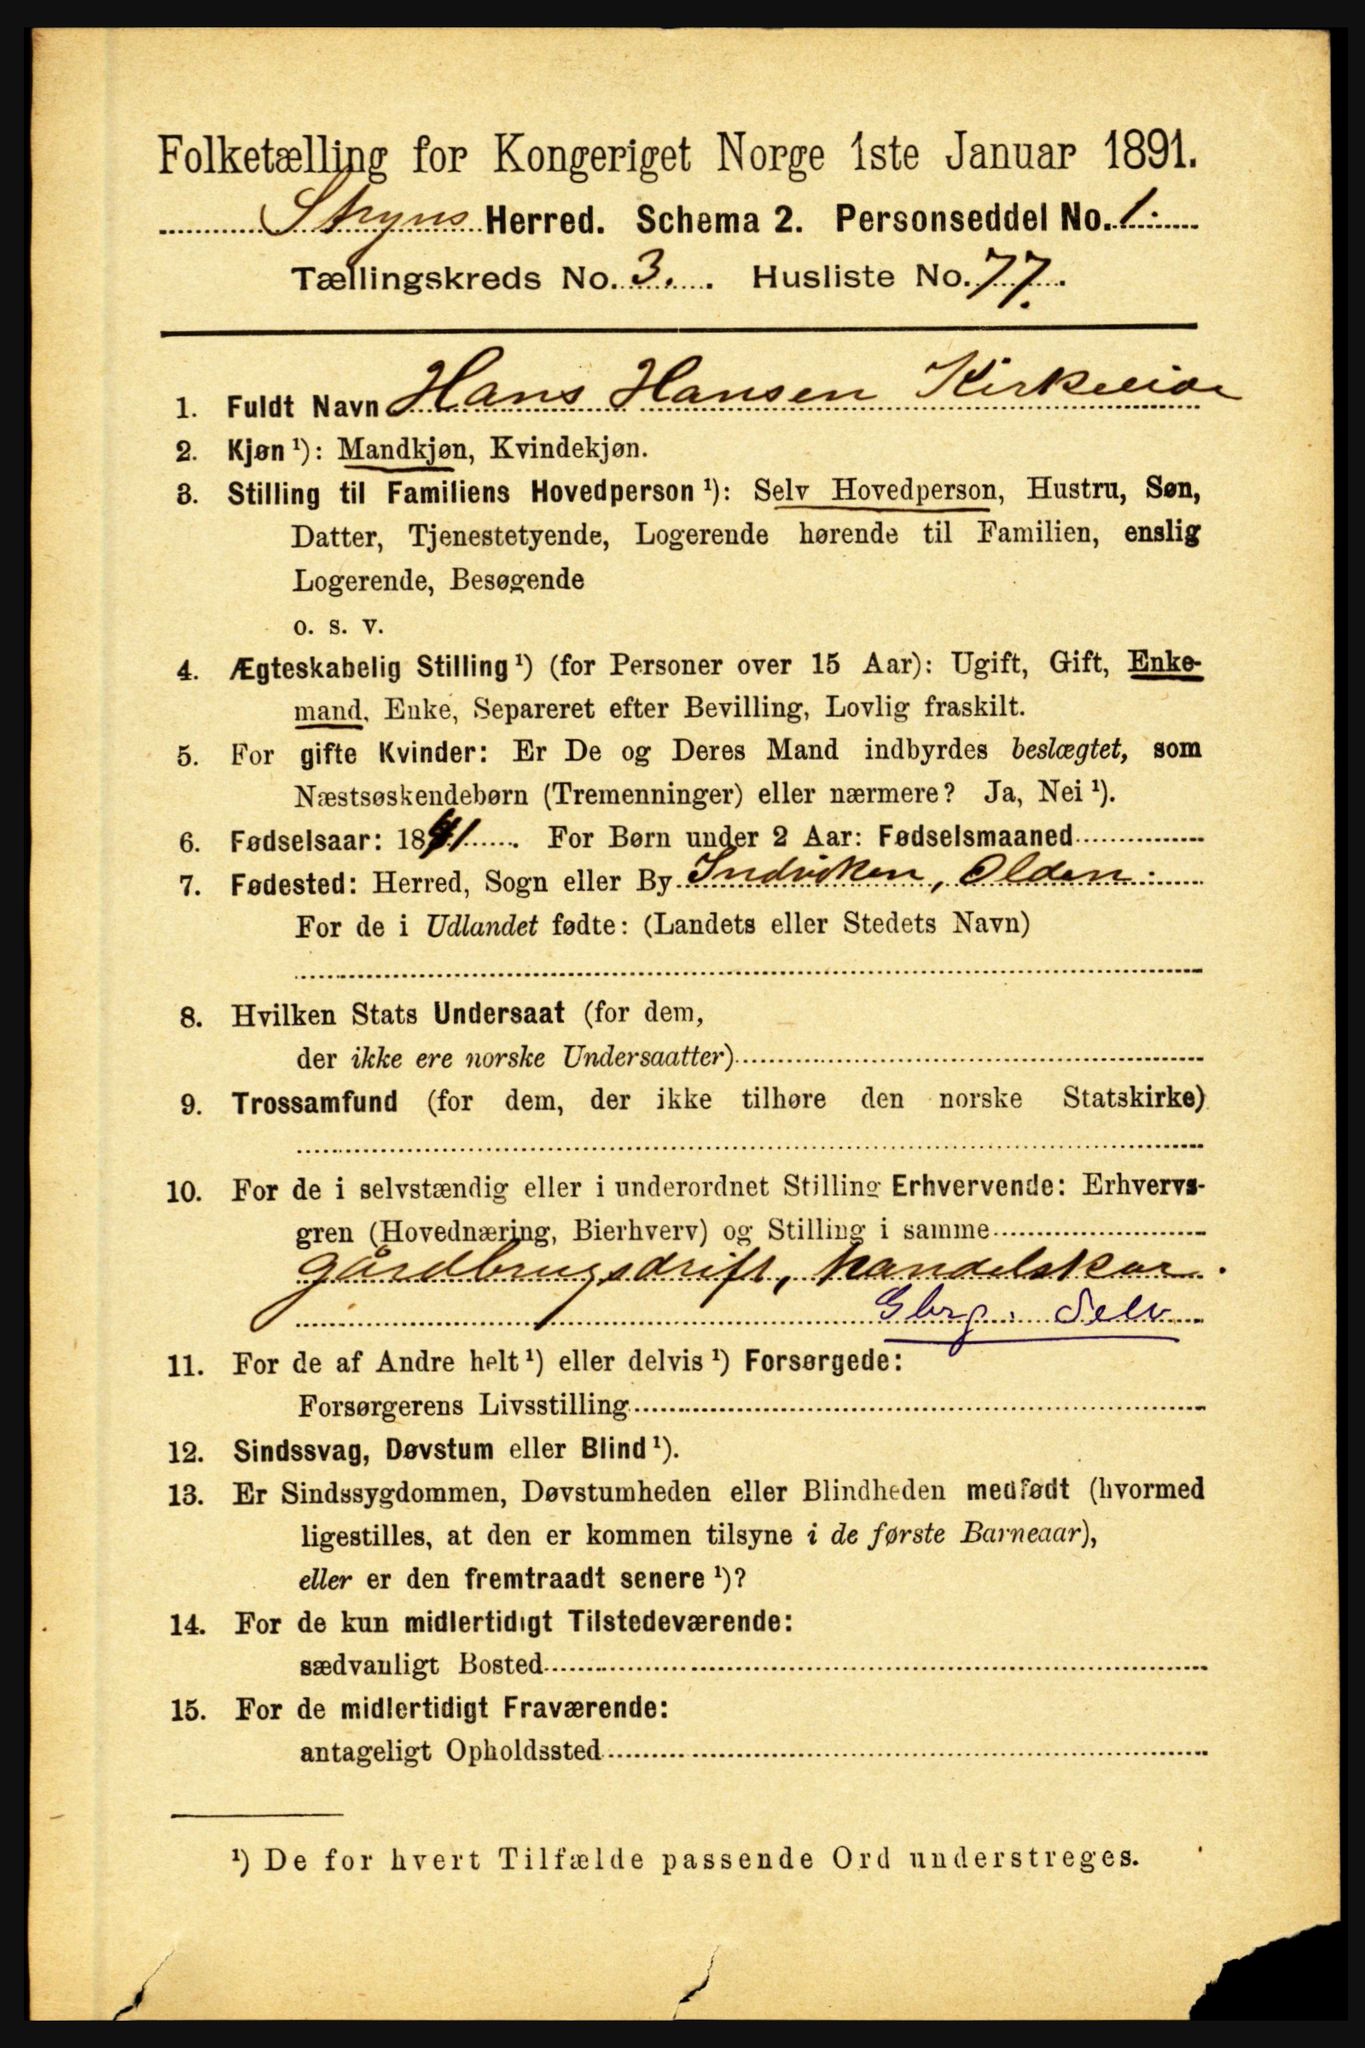 Folketælling for Kongeriget Norge 1ste Januar 1891.
Stryns Herred. Schema 2. Personseddel No. 1.
Tællingskreds No. 3. Husliste No. 77.
1. Fuldt Navn Hans Hansen Kirkeeide
2. Kjøn ¹): Mandkjøn, Kvindekjøn.
3. Stilling til Familiens Hovedperson ¹): Selv Hovedperson, Hustru, Søn,
Datter, Tjenestetyende, Logerende hørende til Familien, enslig
Logerende, Besøgende
o. s. v.
4. Ægteskabelig Stilling ¹) (for Personer over 15 Aar): Ugift, Gift, Enke-
mand, Enke, Separeret efter Bevilling, Lovlig fraskilt.
5. For gifte Kvinder: Er De og Deres Mand indbyrdes beslægtet, som
Næstsøskendebørn (Tremenninger) eller nærmere? Ja, Nei ¹).
6. Fødselsaar: 1841. For Børn under 2 Aar: Fødselsmaaned
7. Fødested: Herred, Sogn eller By Indviken, Olden.
For de i Udlandet fødte: (Landets eller Stedets Navn)
8. Hvilken Stats Undersaat (for dem,
der ikke ere norske Undersaatter)
9. Trossamfund (for dem, der ikke tilhøre den norske Statskirke)
10. For de i selvstændig eller i underordnet Stilling Erhvervende: Erhvervs-
gren (Hovednæring, Bierhverv) og Stilling i samme
gårdbrugsdrift, handelskar.
Gbrg. Selv
11. For de af Andre helt ¹) eller delvis ¹) Forsørgede:
Forsørgerens Livsstilling
12. Sindssvag, Døvstum eller Blind ¹).
13. Er Sindssygdommen, Døvstumheden eller Blindheden medfødt (hvormed
ligestilles, at den er kommen tilsyne i de første Barneaar),
eller er den fremtraadt senere ¹)?
14. For de kun midlertidigt Tilstedeværende:
sædvanligt Bosted
15. For de midlertidigt Fraværende:
antageligt Opholdssted
¹) De for hvert Tilfælde passende Ord understreges.